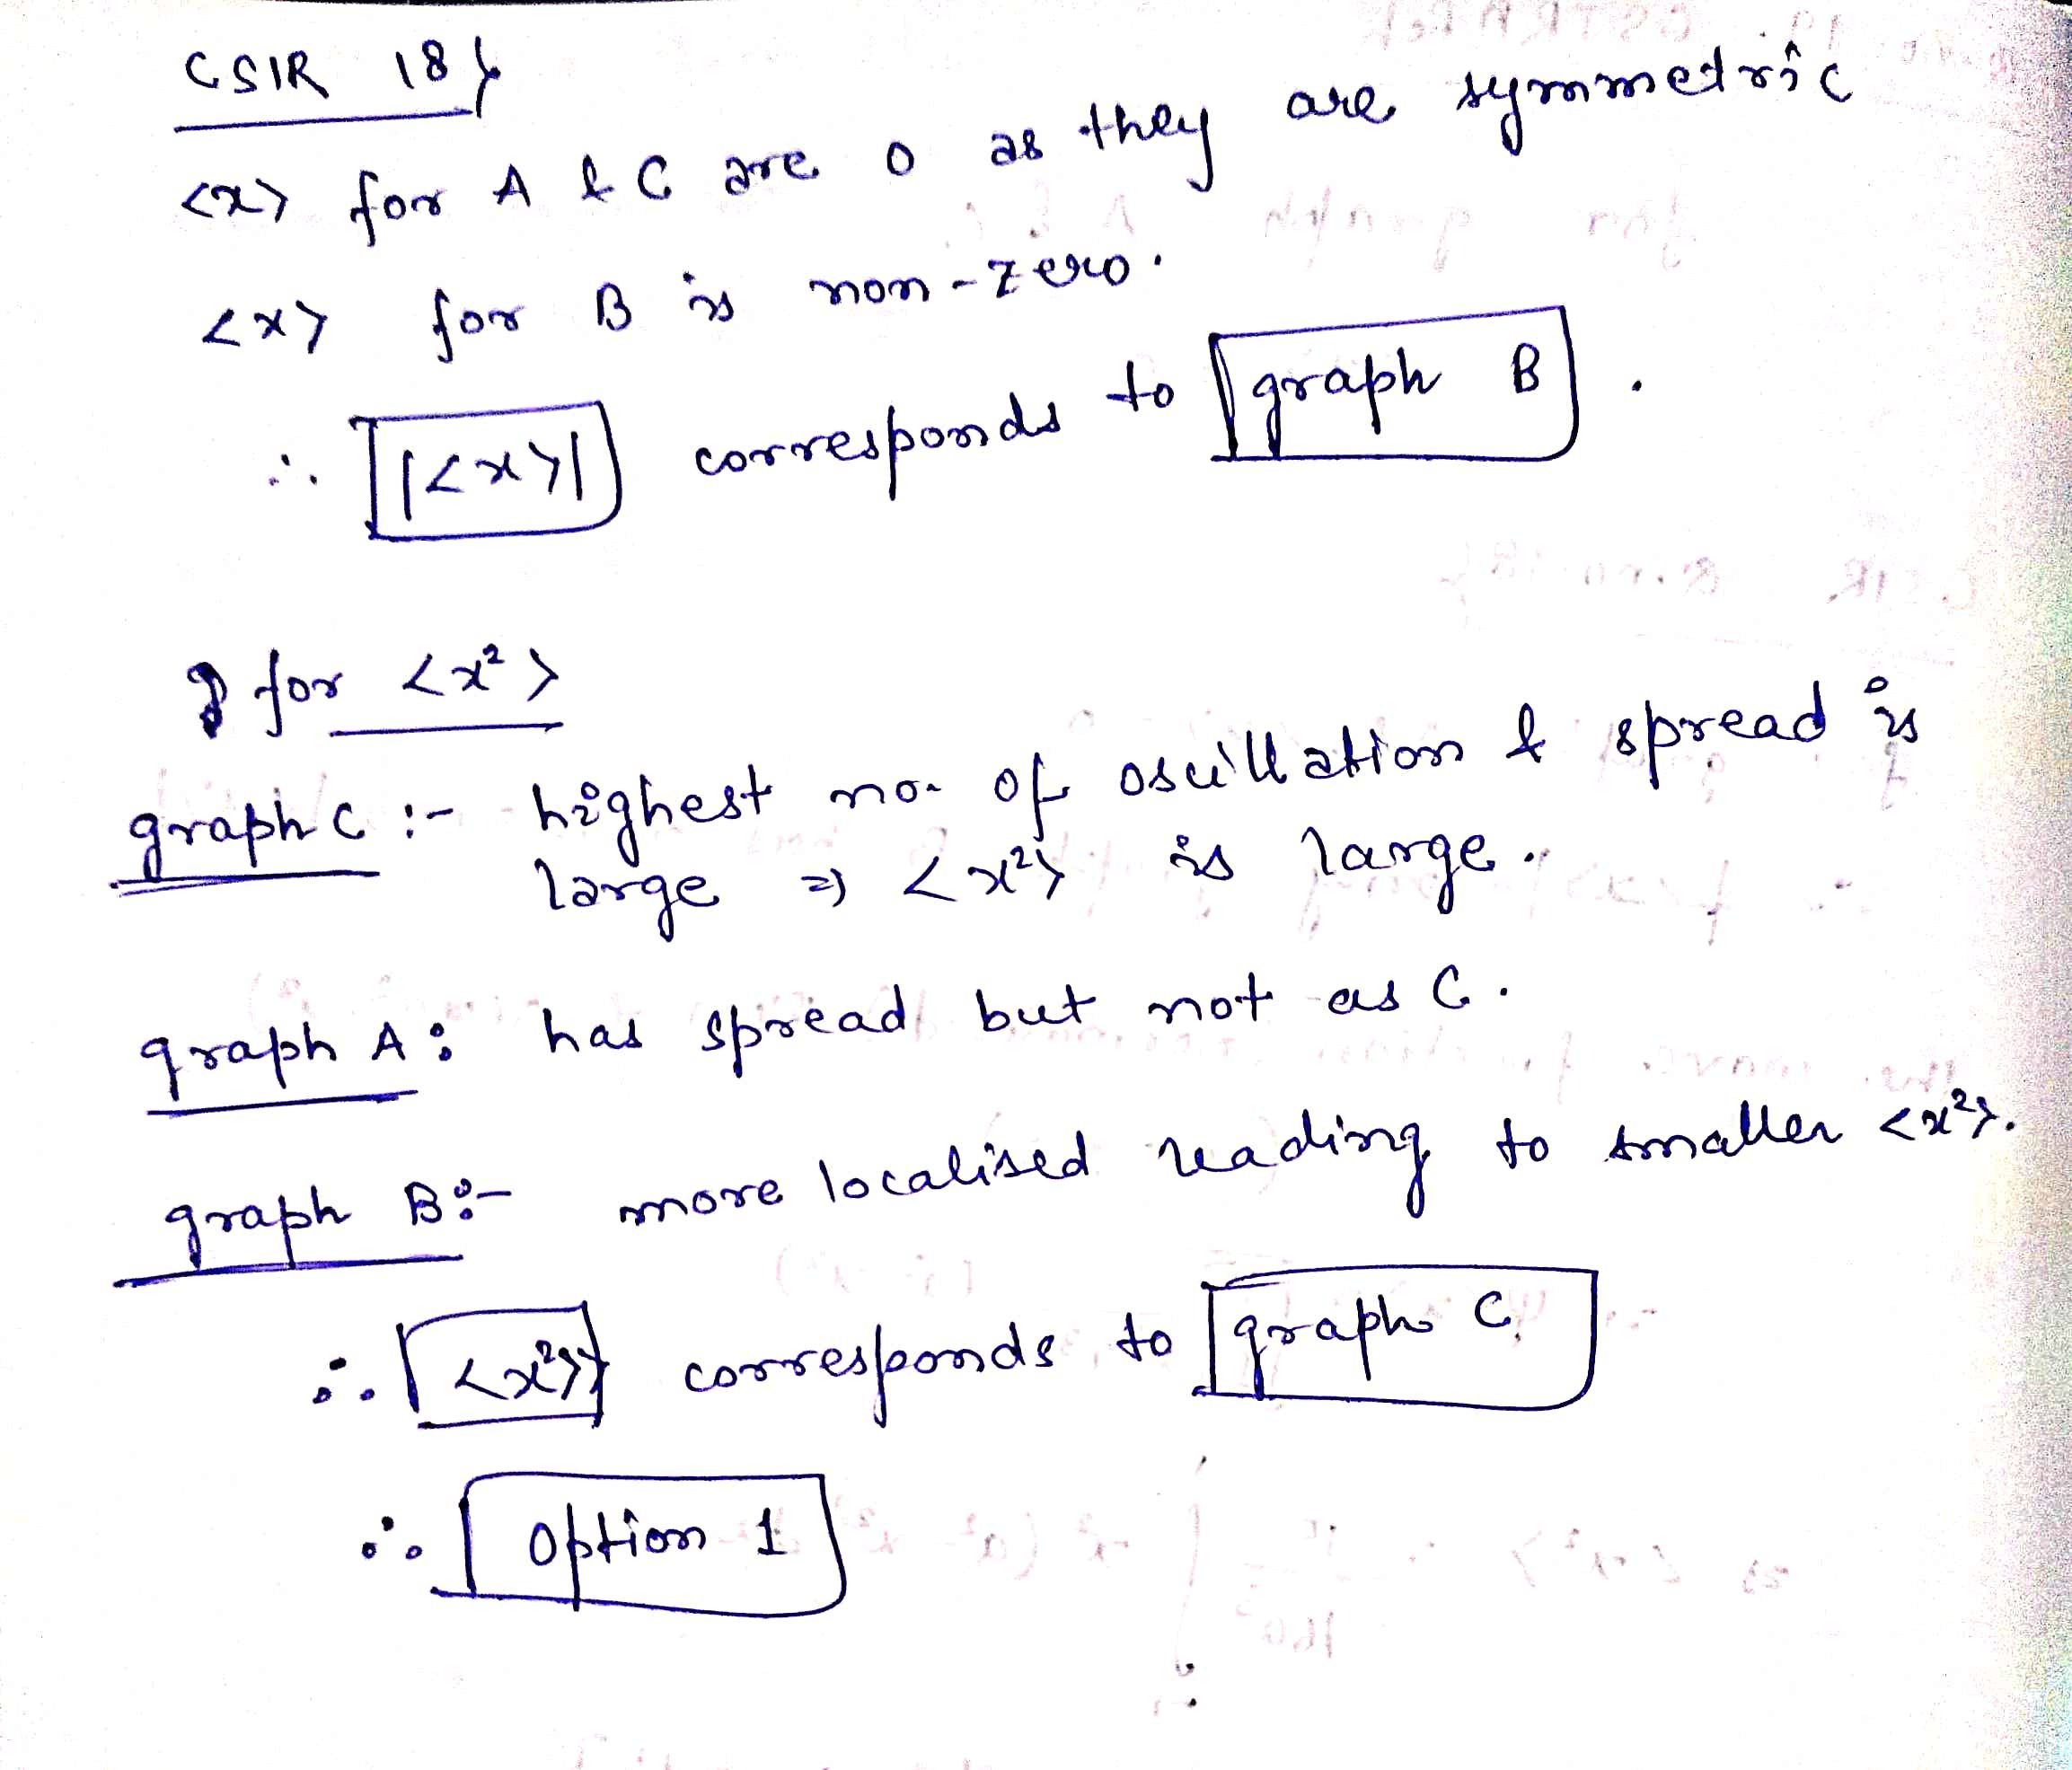 CSIR 18}
<x> for A & C are 0 as they are symmetric
<x> for B is non-zero.
∴ |<x>| corresponds to graph B.
for <x²>
graph C :- highest no. of oscillation & spread is
large => <x²> is large.
graph A: has spread but not as C.
graph B:- more localised leading to smaller <x²>.
∴ <x²> corresponds to graph C
∴ Option 1